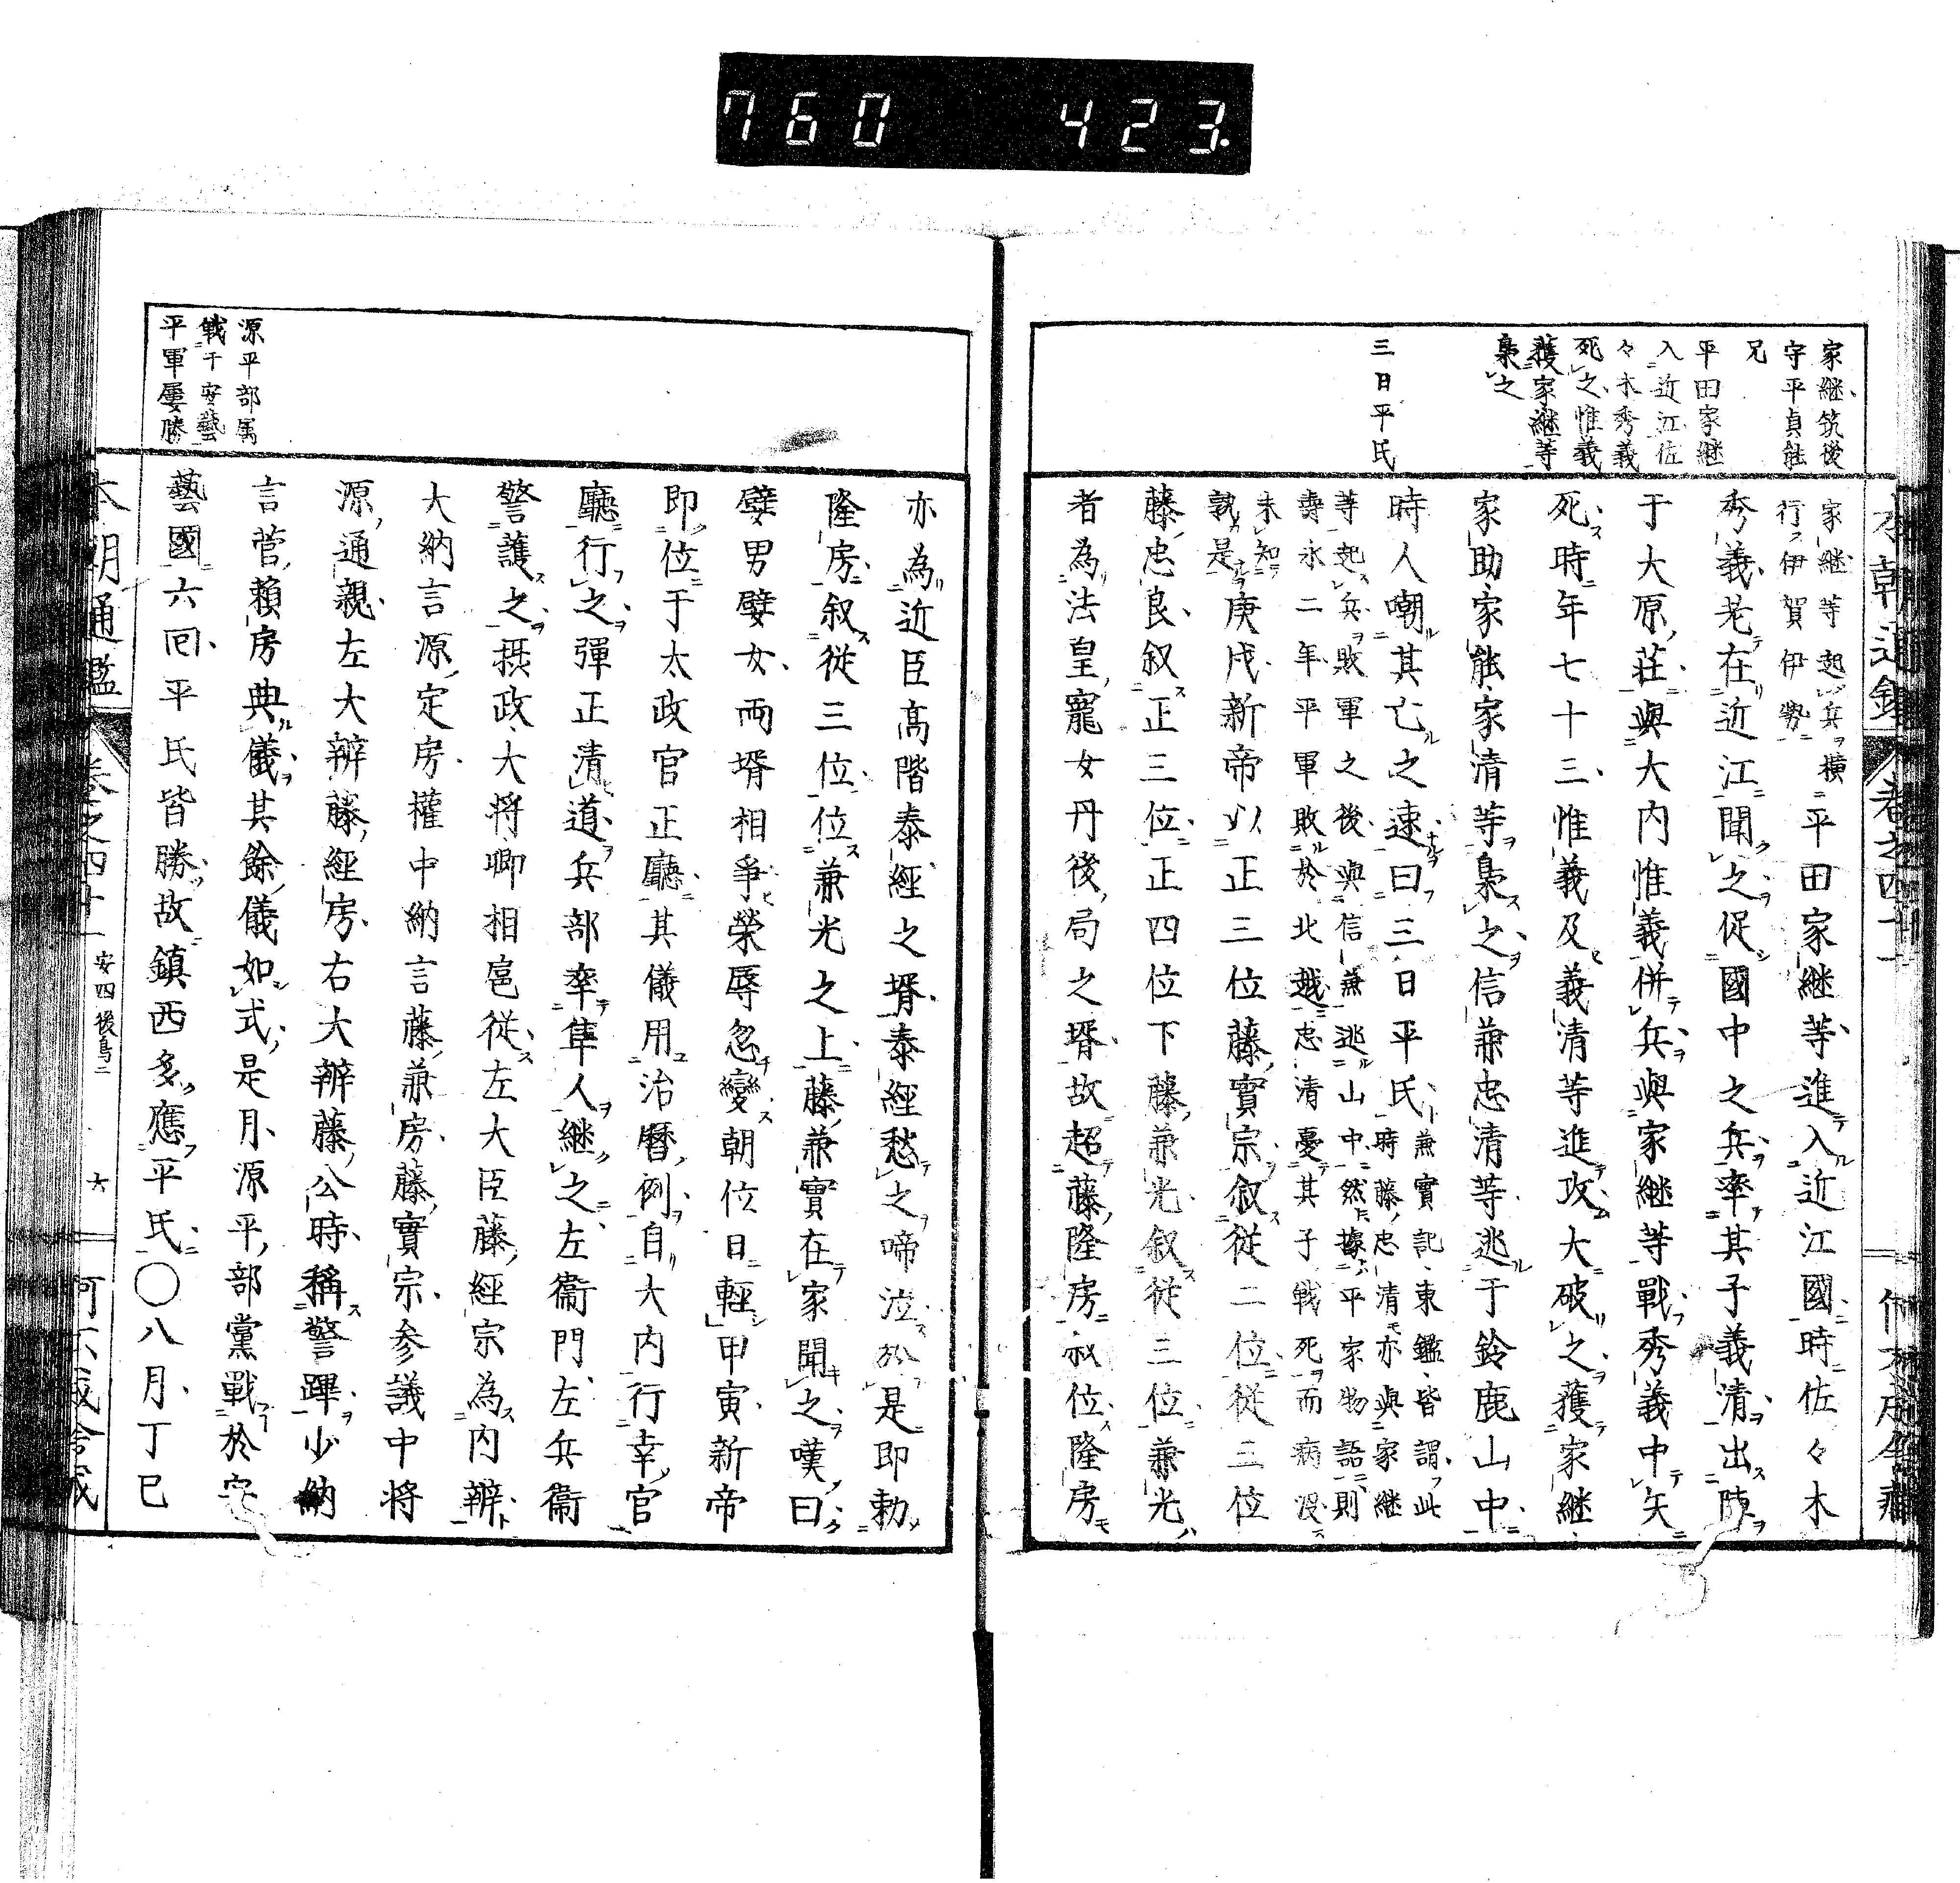 760 423
家継筑後
守平貞能
兄
平田家継
入近江佐
々木秀義
死之惟義
獲家継等
梟之
三日平氏
家継等起兵横
行伊賀伊勢
平田家継等進入近江國時佐々木
秀義老在近江聞之促國中之兵率其子義清出陣
于大原荘與大内惟義併兵與家継等戰秀義中矢
死時年七十三惟義及義清等進攻大破之獲家継
家助家能家清等梟之信兼忠清等逃于鈴鹿山中
時人嘲其亡之速曰三日平氏
兼實記東鑑皆謂此
時藤忠清亦與家継
等起兵敗軍之後與信兼逃山中然據平家物語則
壽永二年平軍敗於北越忠清憂其子戦死而病
未知
孰是
庚戌新帝以正三位藤實宗叙従二位従三位
藤忠良叙正三位正四位下藤兼光叙従三位兼光
者為法皇寵女丹後局之壻故超藤隆房叙位隆房
亦為近臣高階泰經之壻泰經愁之啼泣於是即勅
隆房叙従三位位兼光之上藤兼實在家聞之嘆曰
嬖男嬖女両壻相爭榮辱忽變朝位日輕甲寅新帝
即位于太政官正廳其儀用治暦例自大内行幸官
廳行之彈正清道兵部率隼人継之左衞門左兵衞
警護之摂政大将卿相扈従左大臣藤經宗為内辨
大納言源定房權中納言藤兼房藤實宗参議中将
源通親左大辨藤經房右大辨藤公時稱警蹕少納
言菅賴房典儀其餘儀如式是月源平部黨戰於安
藝國六囘平氏皆勝故鎮西多應平氏〇八月丁巳
源平部属
戦于安藝
平軍屡勝
本朝通鑑
卷之四十一
安四後鳥二
六